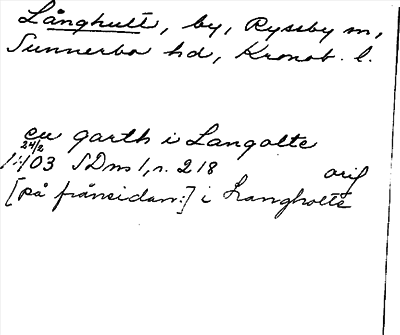 Långhult, by, Ryssby sn,
Sunnerbo hd, Kronob. l.
en garth i Langolte
24/2
1403 SDns 1, n. 218 orig
[på frånsidan:] i Langholte